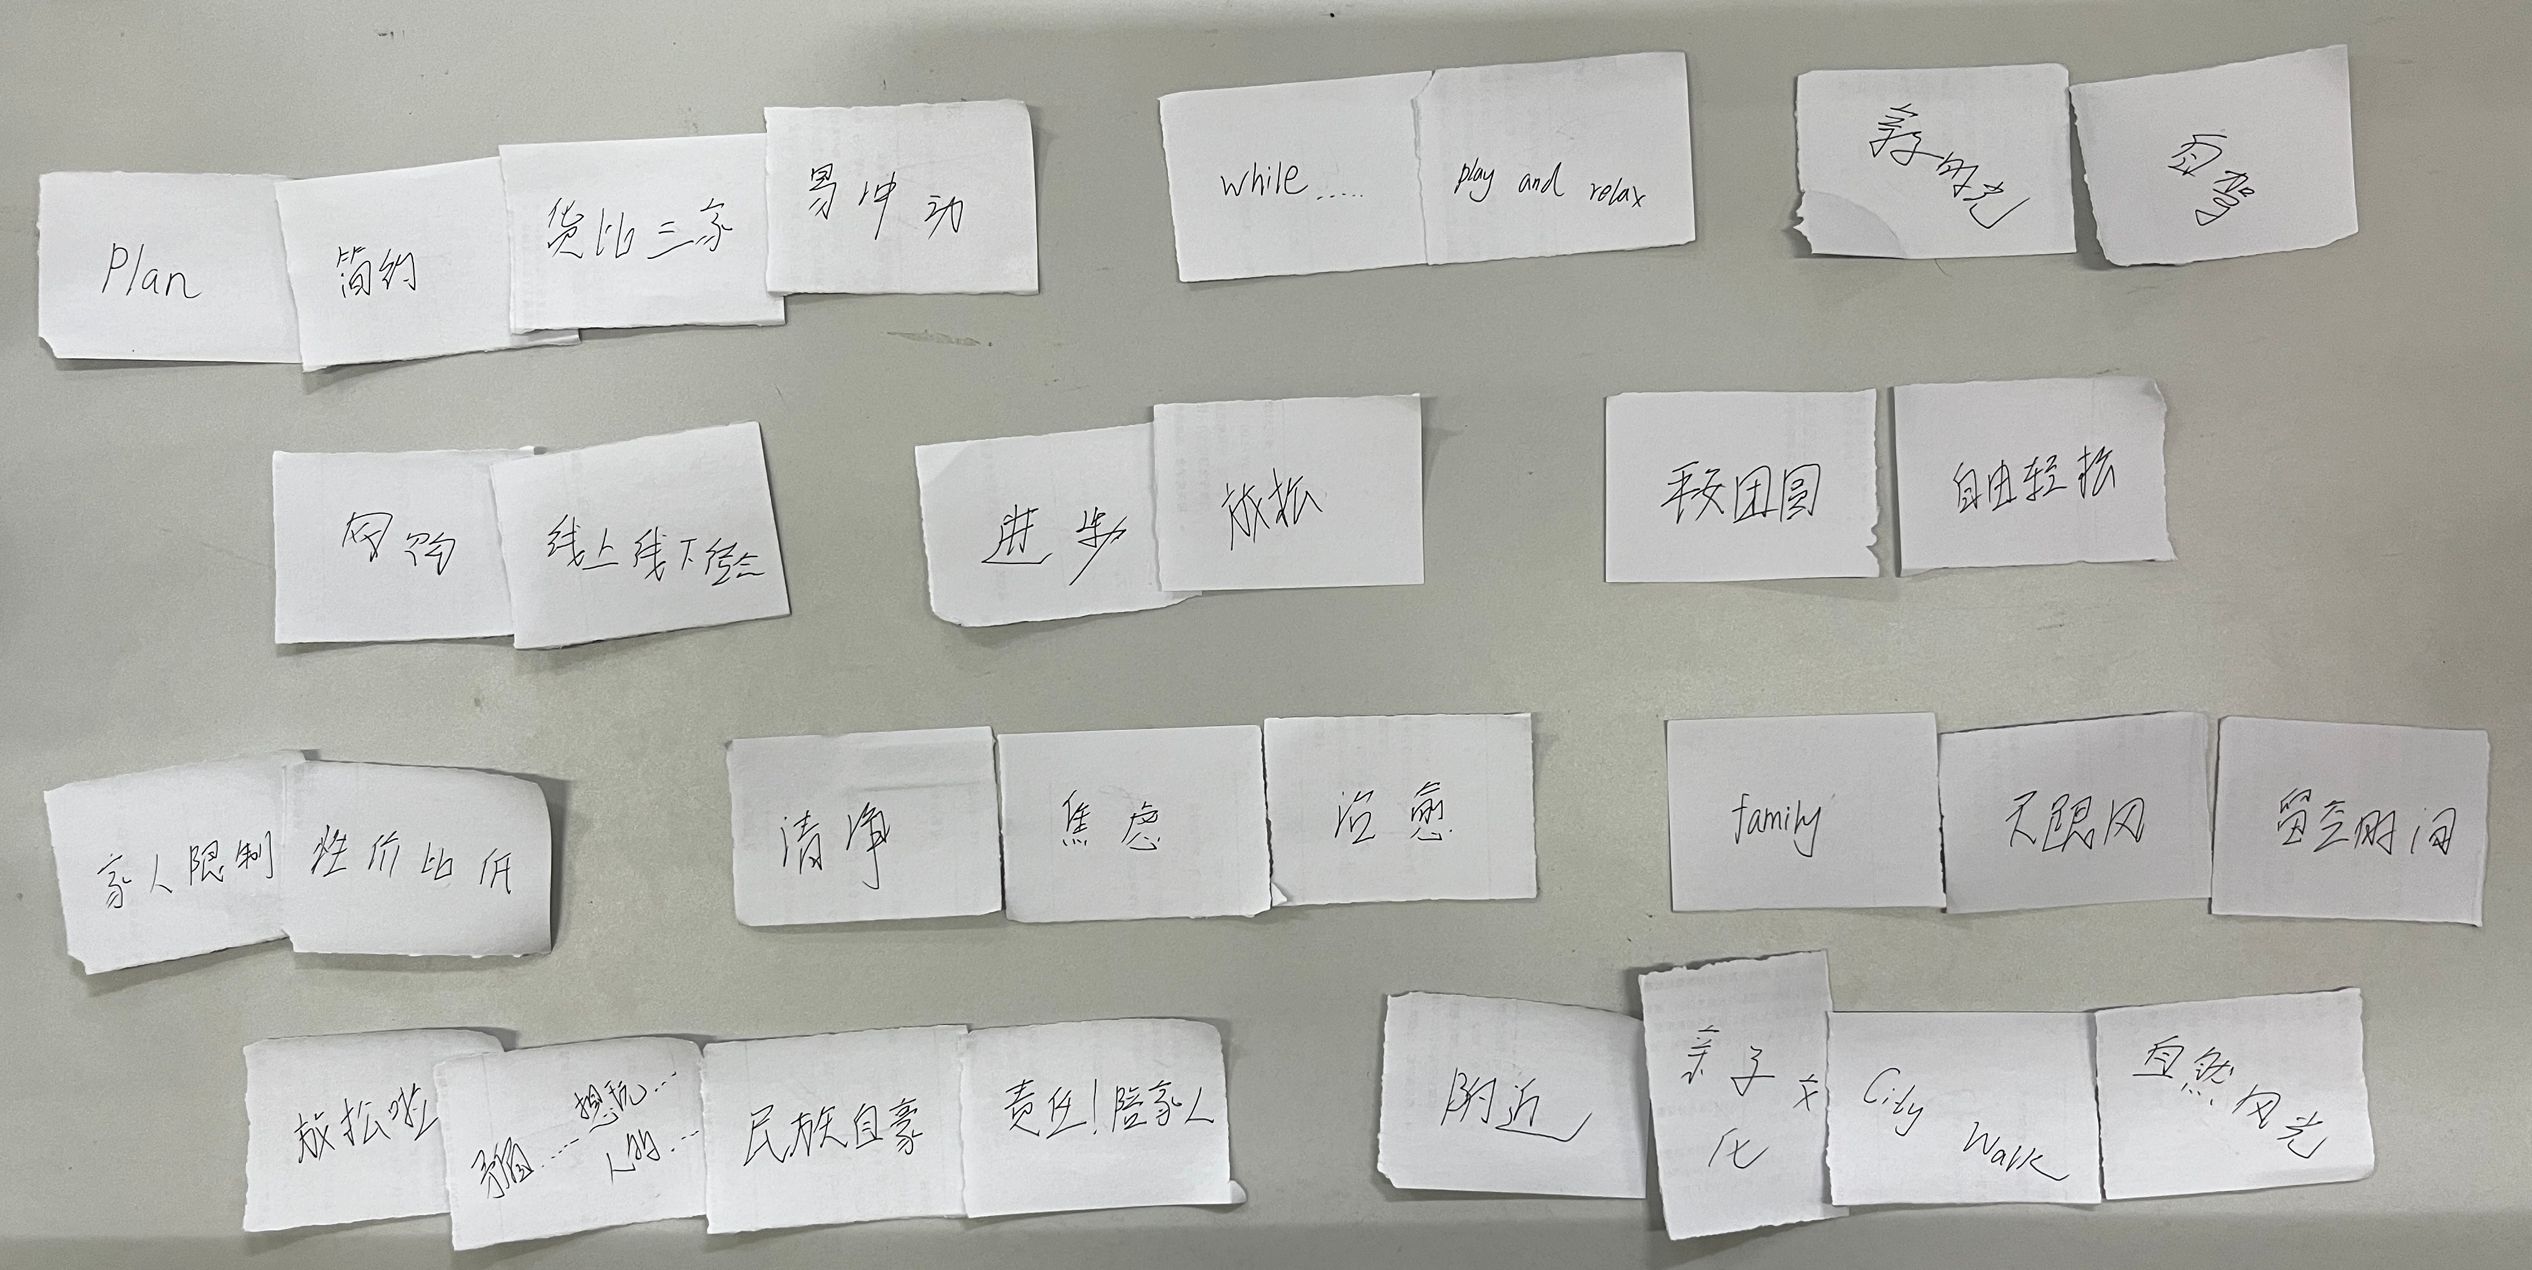 Plan
简约
货比三家
易冲动
while......
play and relax
亲子时光
自驾
网购
线上线下结合
进步
放松
平安团圆
自由轻松
家人限制
性价比低
清净
焦虑
治愈
family
不跟风
留空时间
放松啦
矛盾.... 想玩...
人的...
民族自豪
责任!陪家人
附近
亲子文
化
City
Walk
自然风光